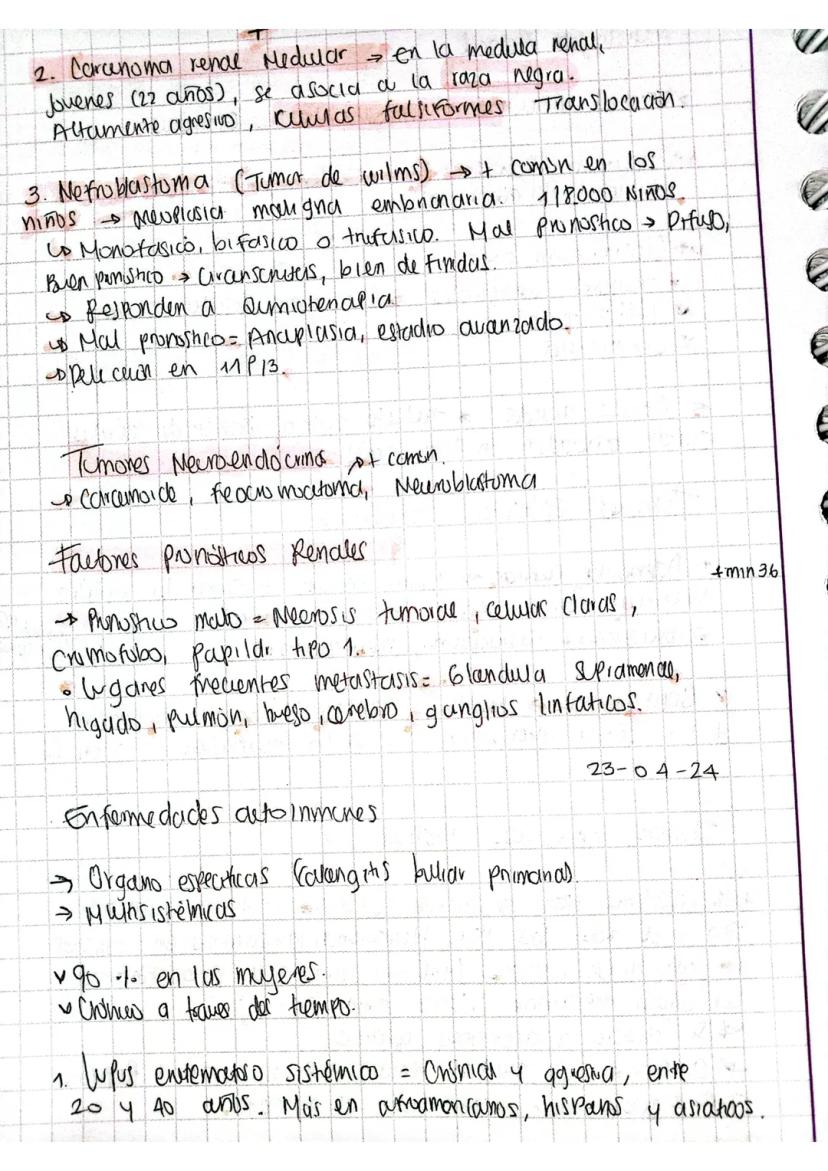 2. Carcinoma renal Medular → en la medula renal,
Jovenes (22 años), se asocia a la raza negra.
Altamente agresivo, celulas falsiformes Translocación.
3. Nefroblastoma (Tumor de wilms) → + común en los
niños → neoplasia maligna embrionaria. 1/8.000 NIÑOS.
↳ Monofasico, bifasico o trifasico. Mal pronostico → Difuso,
Buen pronostico → Circunscritas, bien definidas.
↳ Responden a Quimioterapia
↳ Mal pronostico = Anaplasia, estadio avanzado.
→ Delecion en 11P13.
Tumores Neuroendócrino → + comun.
→ Carcinoide, feocromocitoma, Neuroblastoma
Factores pronósticos Renales
+min36
→ Pronostico malo = Necrosis tumoral, celulas claras,
Cromofobo, papilar tipo 1.
• lugares frecuentes metastasis = Glandula suprarrenal,
higado, pulmón, hueso, cerebro, ganglios linfaticos.
23-04-24
Enfermedades autoinmunes
→ Organo especificas (colangitis biliar primaria).
→ Multisistémicas
✓ 90 % en las mujeres.
✓ Crónico a traves del tiempo.
1. Lupus eritematoso sistémico = Crónica y agresiva, entre
20 y 40 años. Más en afroamericanos, hispanos y asiaticos.